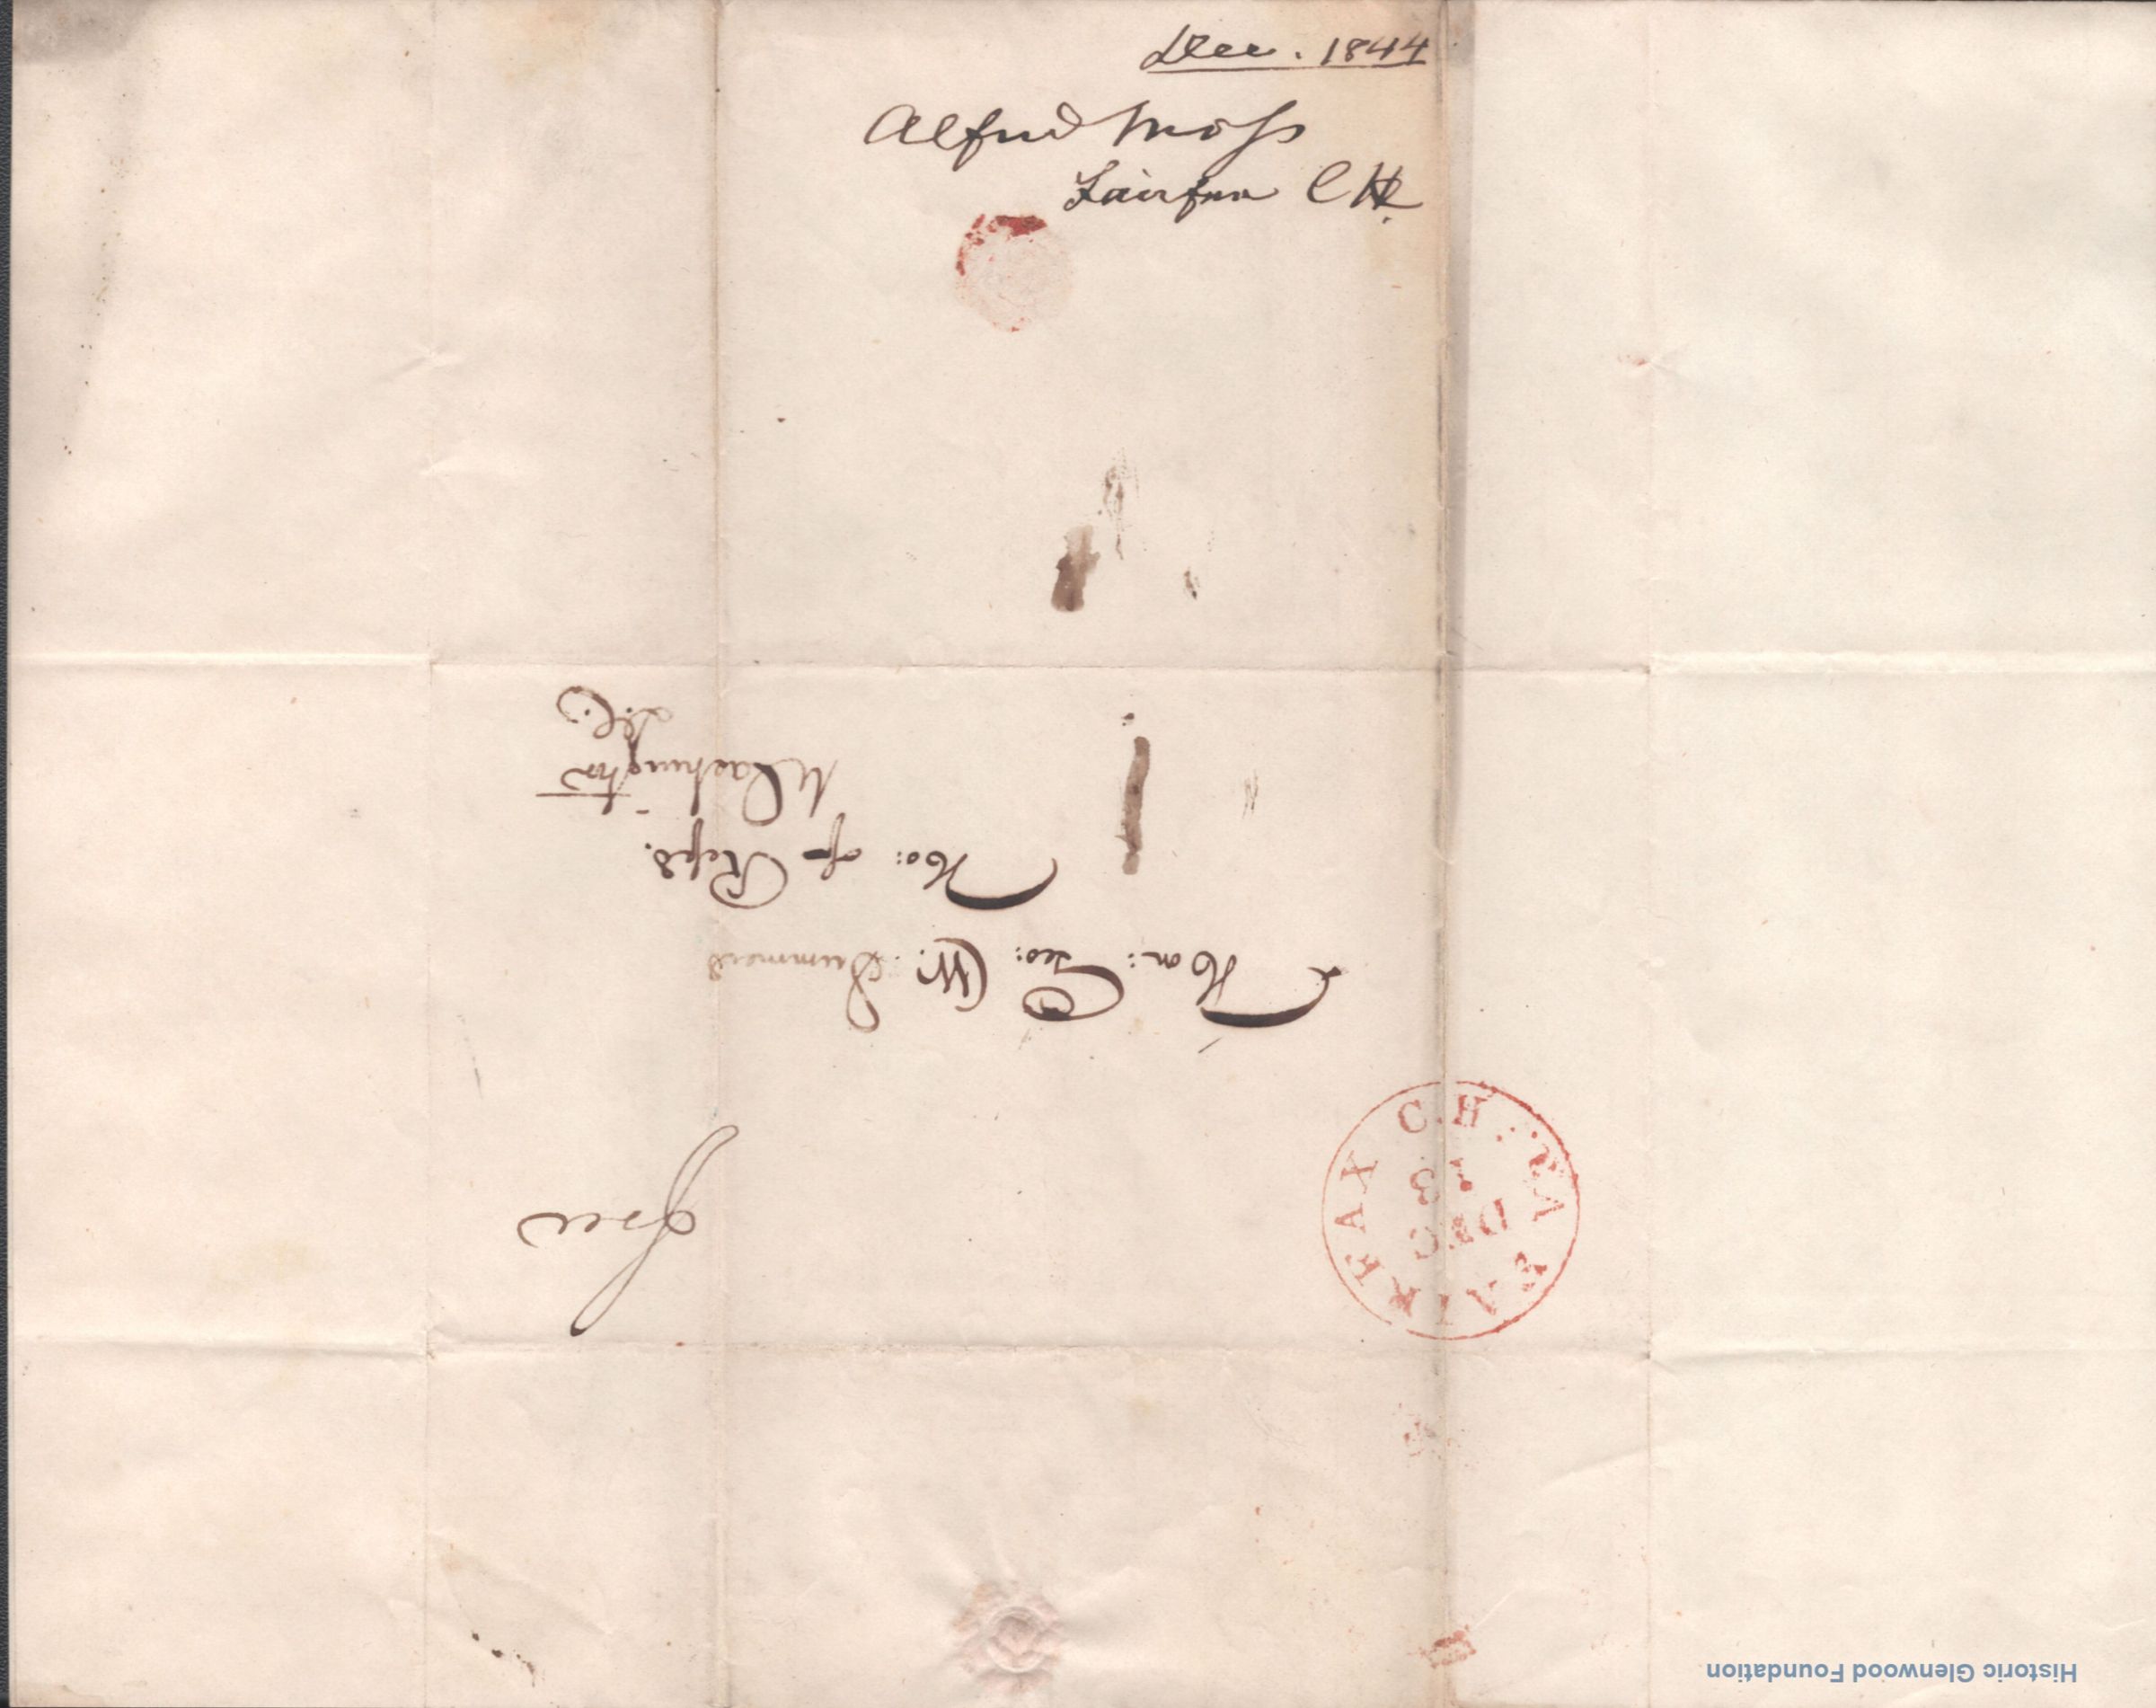 Dec. 1844
Alfred Moss
Fairfax C H.
Free
Hon: Geo: W. Summers
Ho: of Reps.
Washington
D.C.
FAIRFAX C.H. VA
DEC
13
Historic Glenwood Foundation